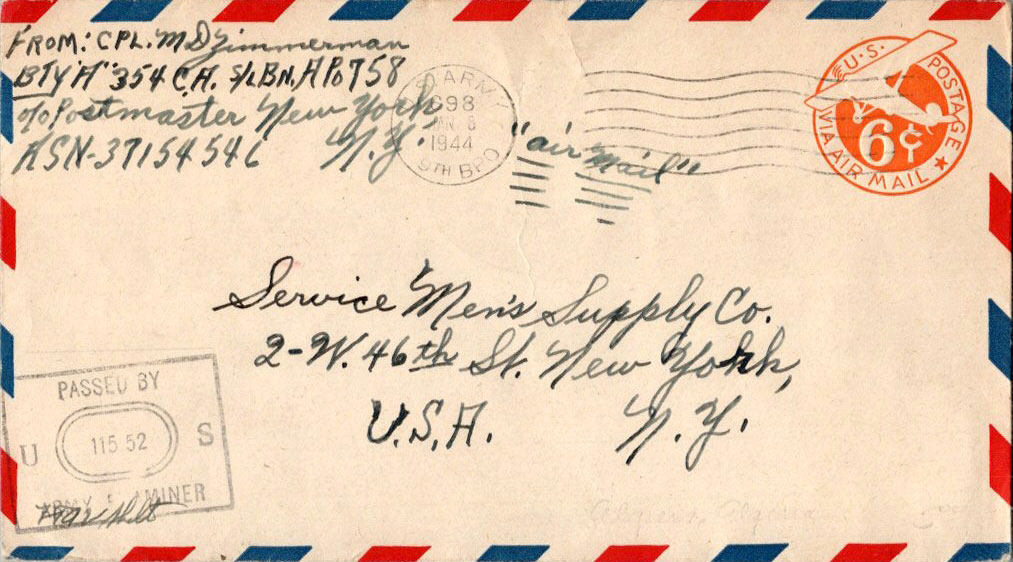 FROM: CPL. M D Zimmerman
BTY "A" 354 C.A. S/L BN, APO 758
c/o Postmaster New York
ASN-37154546 N.Y.
U.S. ARMY
698
1944
9TH BPO
"air mail"
U.S. POSTAGE
6¢
VIA AIR MAIL
Service Men's Supply Co.
2-W. 46th St. New York,
U.S.A. N.Y.
PASSED BY
U 11552 S
ARMY EXAMINER